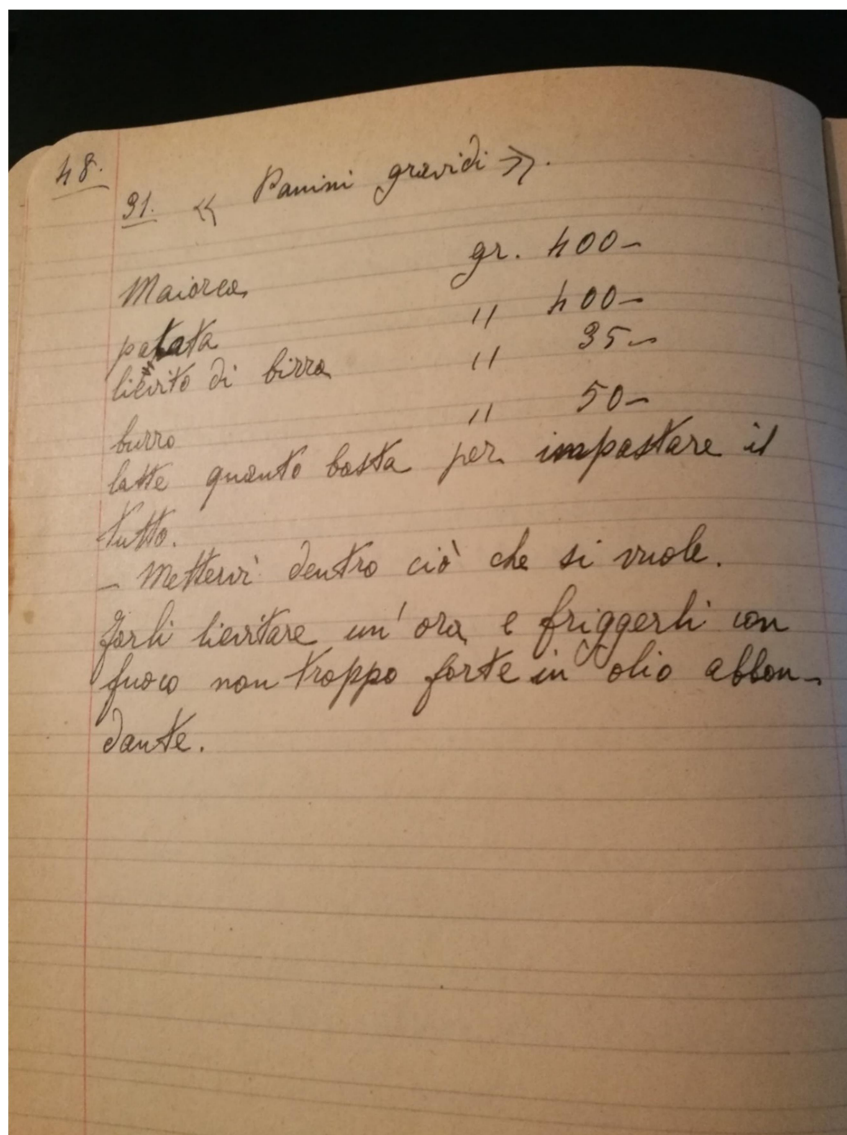 48.
31. « Panini gravidi ».
Maiorca gr. 400-
patata " 400-
lievito di birra " 35-
burro " 50-
latte quanto basta per impastare il
tutto.
- Mettervi dentro ciò che si vuole.
Farli lievitare un'ora e friggerli con
fuoco non troppo forte in olio abbon-
dante.